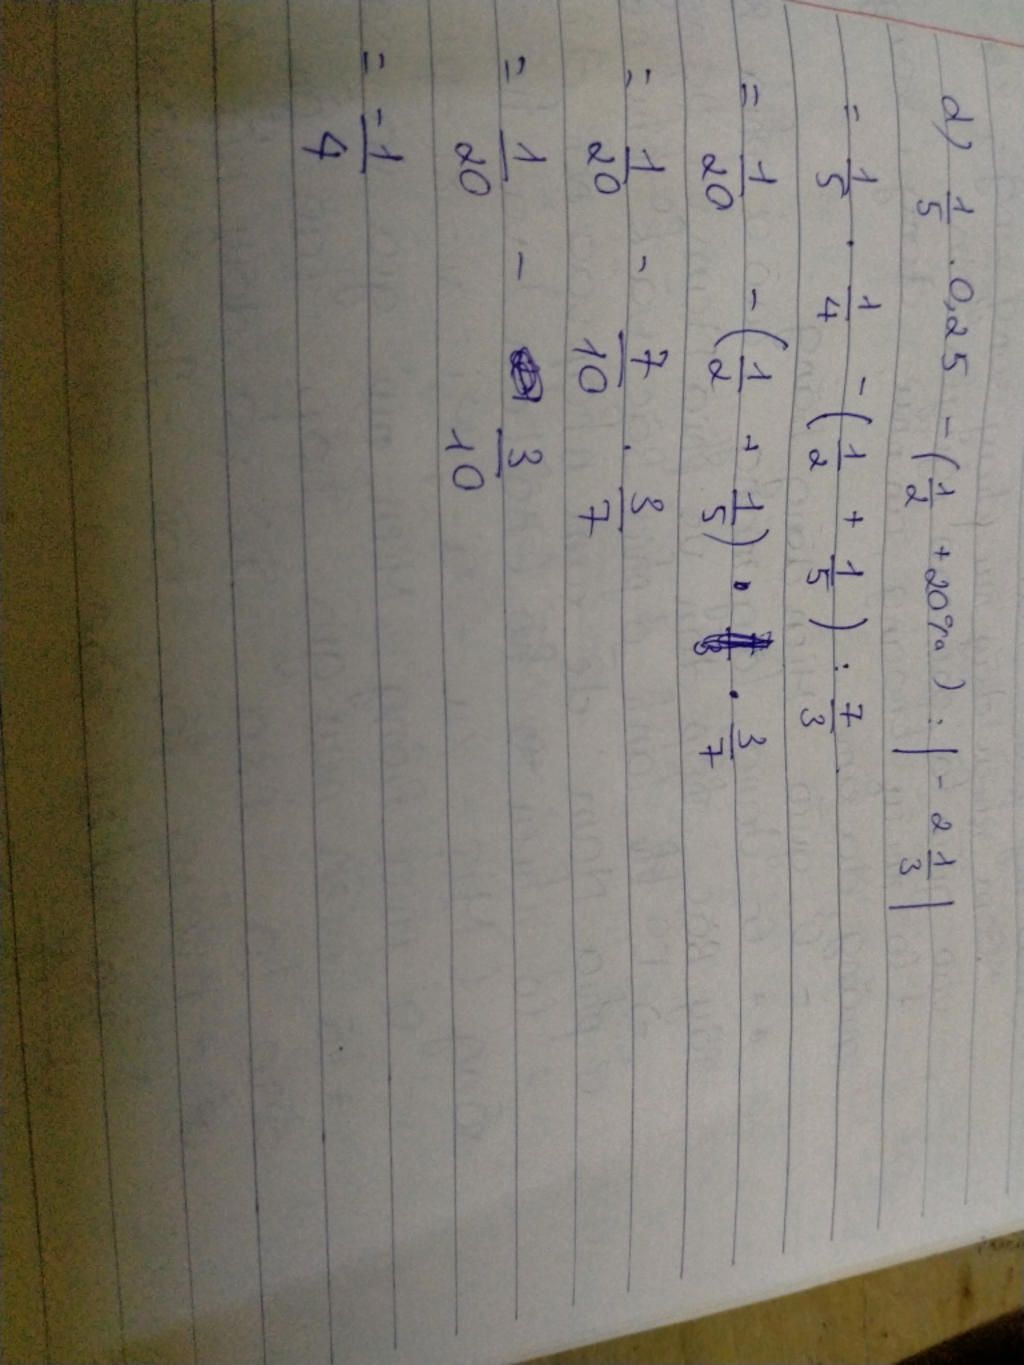 d) 1/5 . 0,25 - (1/2 + 20%) : |-2 1/3|
= 1/5 . 1/4 - (1/2 + 1/5) : 7/3
= 1/20 - (1/2 + 1/5) . . 3/7
= 1/20 - 7/10 . 3/7
= 1/20 - 3/10
= -1/4